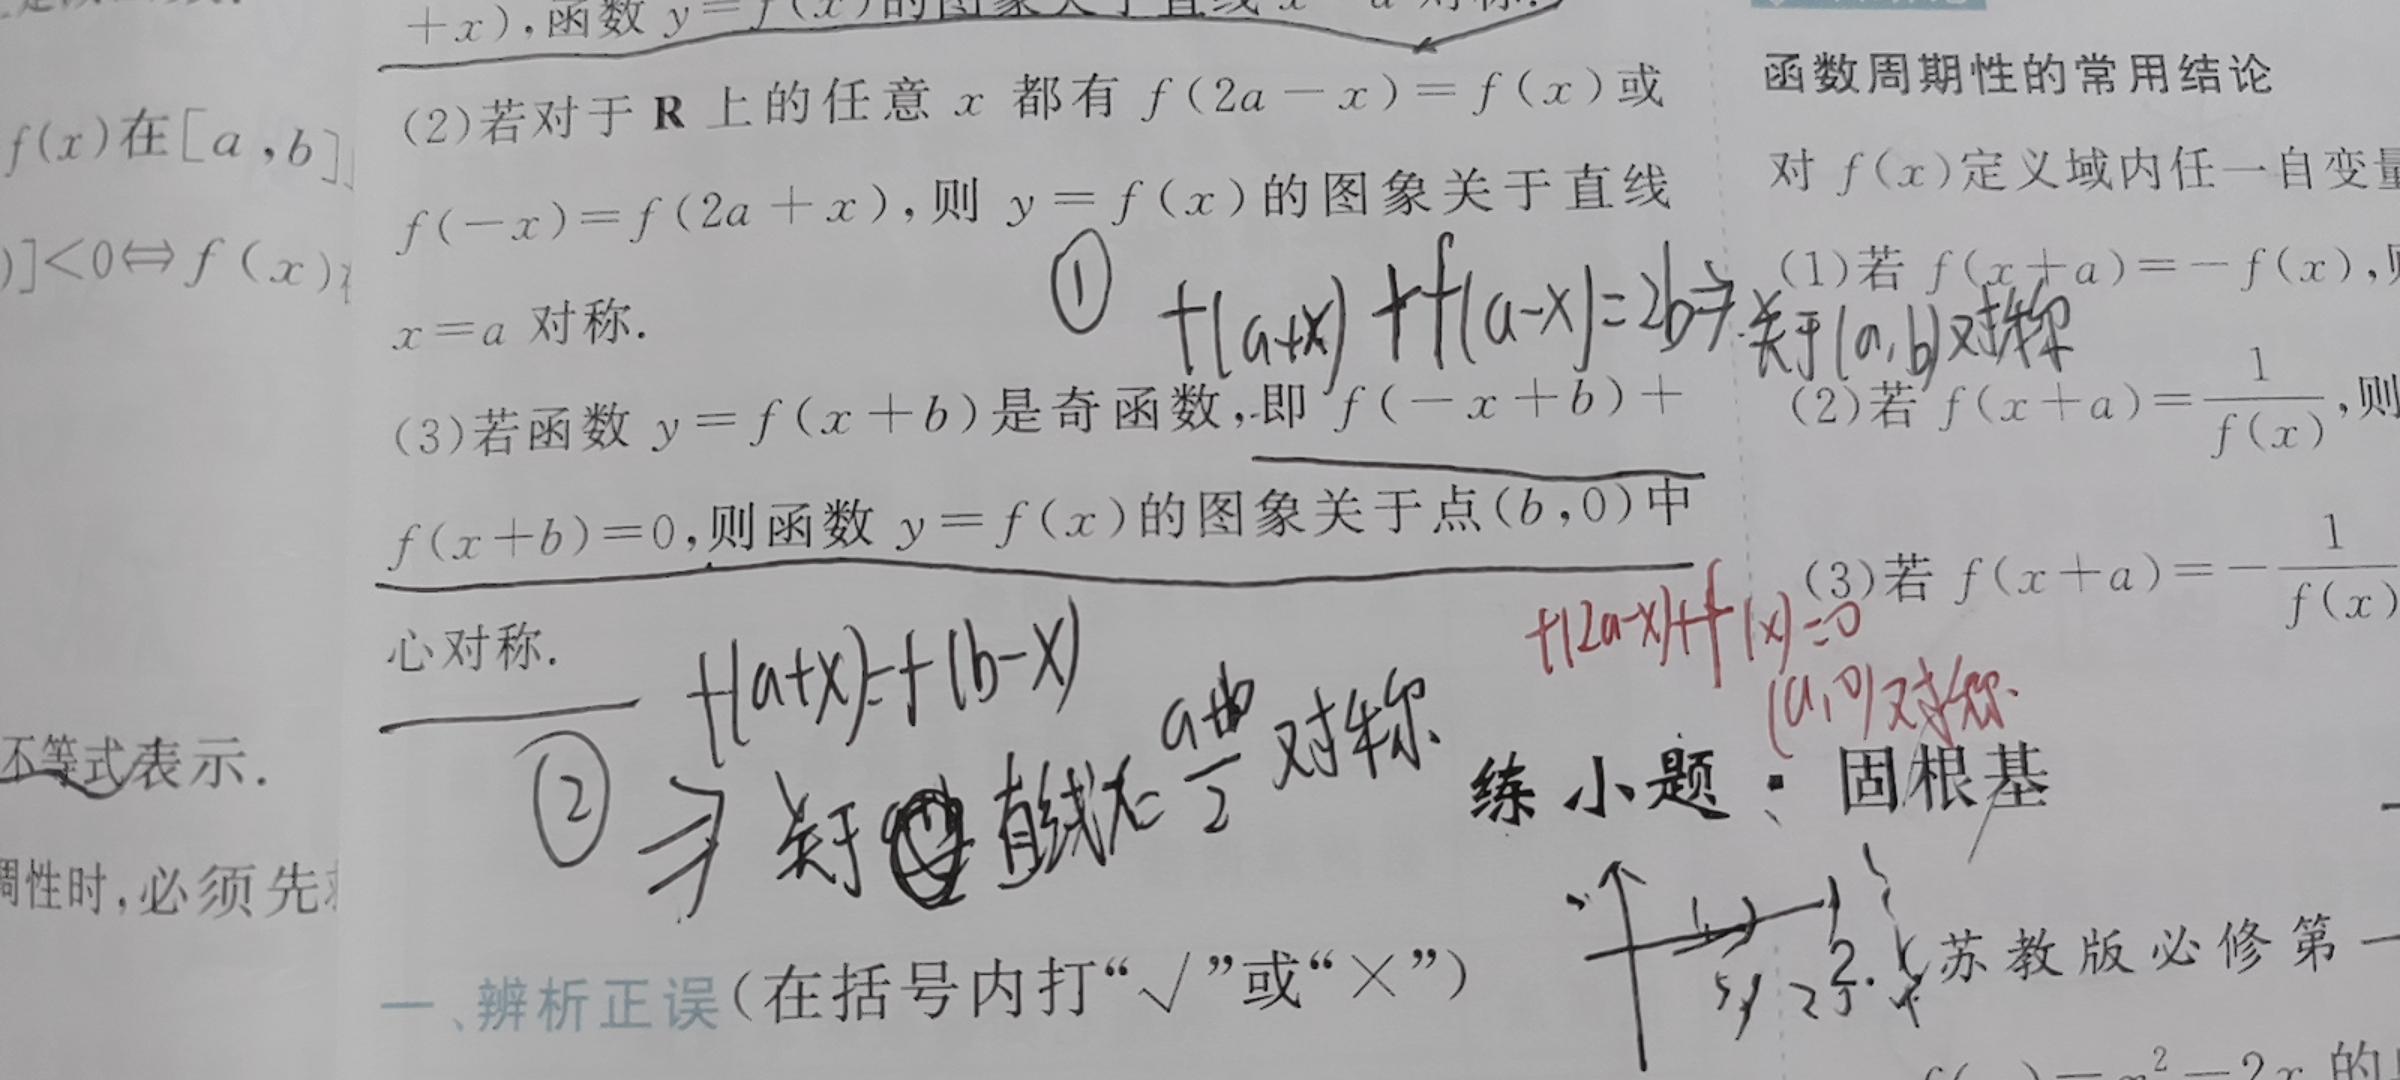 f(x)在[a,b]
)]<0⇔f(x)
不等式表示.
调性时,必须先
+x),函数 y=f(x)的图象关于直线 x=a 对称.
(2)若对于 R 上的任意 x 都有 f(2a-x)=f(x)或
f(-x)=f(2a+x),则 y=f(x)的图象关于直线
x=a 对称.
① f(a+x)+f(a-x)=2b⇒关于(a,b)对称
(3)若函数 y=f(x+b)是奇函数,即 f(-x+b)+
f(x+b)=0,则函数 y=f(x)的图象关于点(b,0)中
心对称.
② f(a+x)=f(b-x)
⇒关于 直线x=(a+b)/2 对称
f(2a-x)+f(x)=0
(a,0)对称
一、辨析正误(在括号内打“√”或“×”)
函数周期性的常用结论
对 f(x)定义域内任一自变量
(1)若 f(x+a)=-f(x),
(2)若 f(x+a)=1/f(x),则
(3)若 f(x+a)=-1/f(x)
练小题:固根基
2.
苏教版必修第一
=x²-2x 的